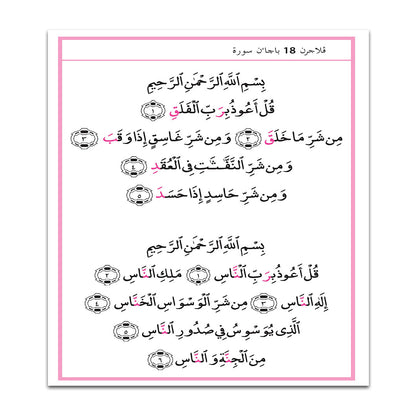 ڤلاجرن 18 باچاٴن سورة
بِسْمِ اللَّهِ الرَّحْمَٰنِ الرَّحِيمِ
قُلْ أَعُوذُ بِرَبِّ الْفَلَقِ ١
مِن شَرِّ مَا خَلَقَ ٢ وَمِن شَرِّ غَاسِقٍ إِذَا وَقَبَ ٣
وَمِن شَرِّ النَّفَّٰثَٰتِ فِي الْعُقَدِ ٤
وَمِن شَرِّ حَاسِدٍ إِذَا حَسَدَ ٥
بِسْمِ اللَّهِ الرَّحْمَٰنِ الرَّحِيمِ
قُلْ أَعُوذُ بِرَبِّ النَّاسِ ١ مَلِكِ النَّاسِ ٢
إِلَٰهِ النَّاسِ ٣ مِن شَرِّ الْوَسْوَاسِ الْخَنَّاسِ ٤
الَّذِي يُوَسْوِسُ فِي صُدُورِ النَّاسِ ٥
مِنَ الْجِنَّةِ وَالنَّاسِ ٦